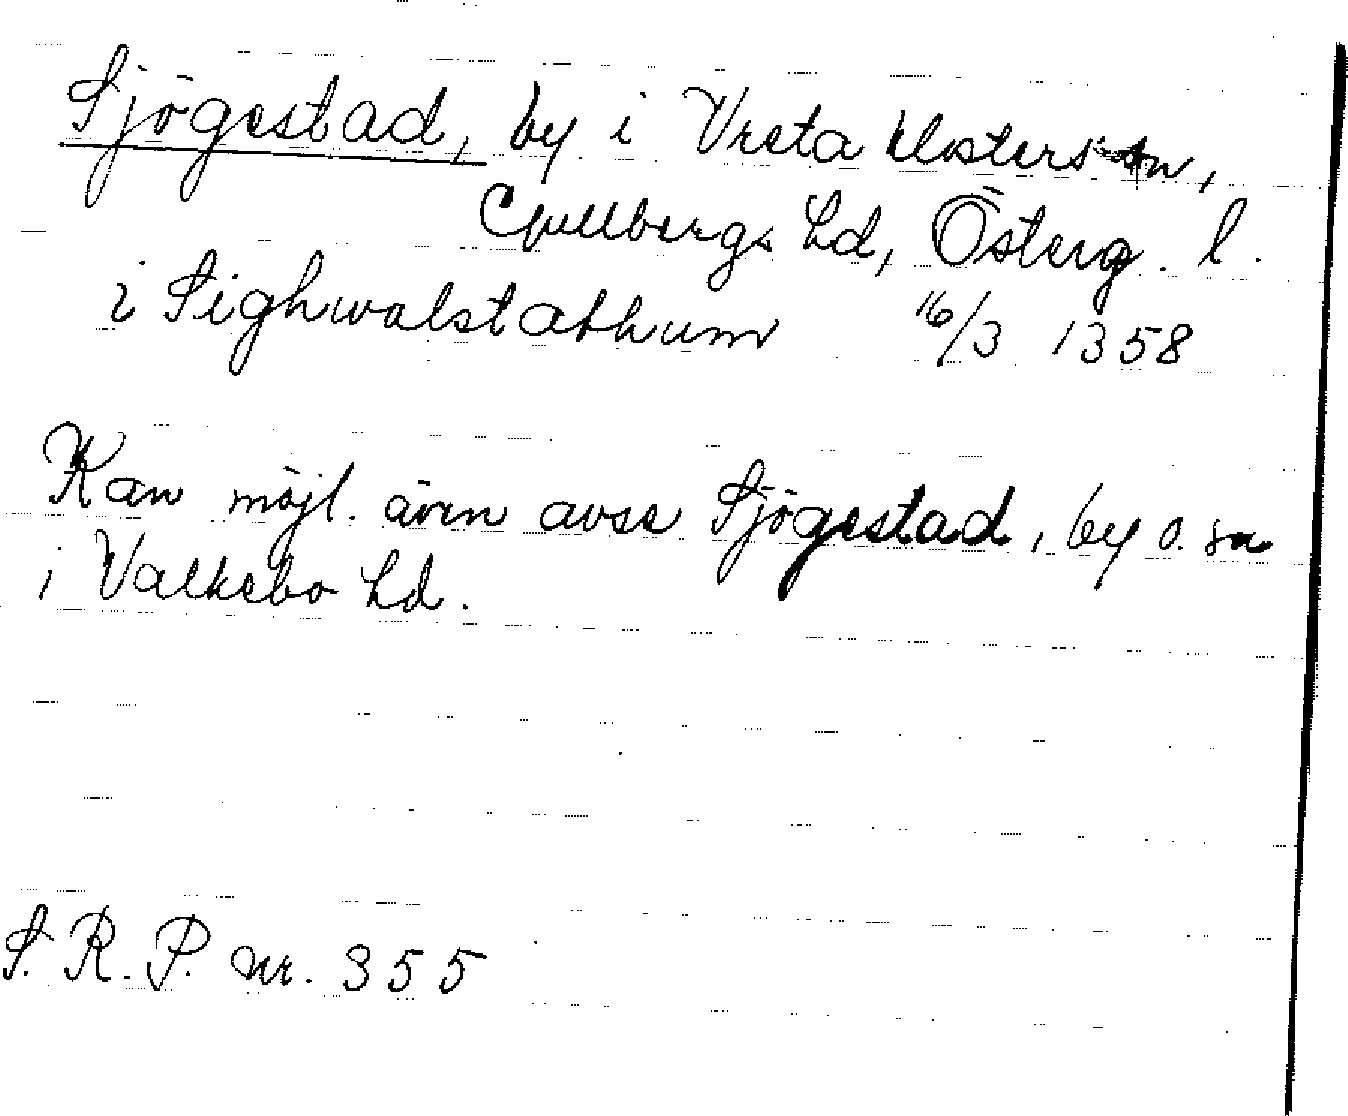 Sjögestad, by i Vreta klosters sn,
Gullbergs hd, Österg. l.
i Sighwalstathum 16/3 1358
Kan möjl. även avse Sjögestad, by o. sn
i Valkebo hd.
S. R. P. nr. 355